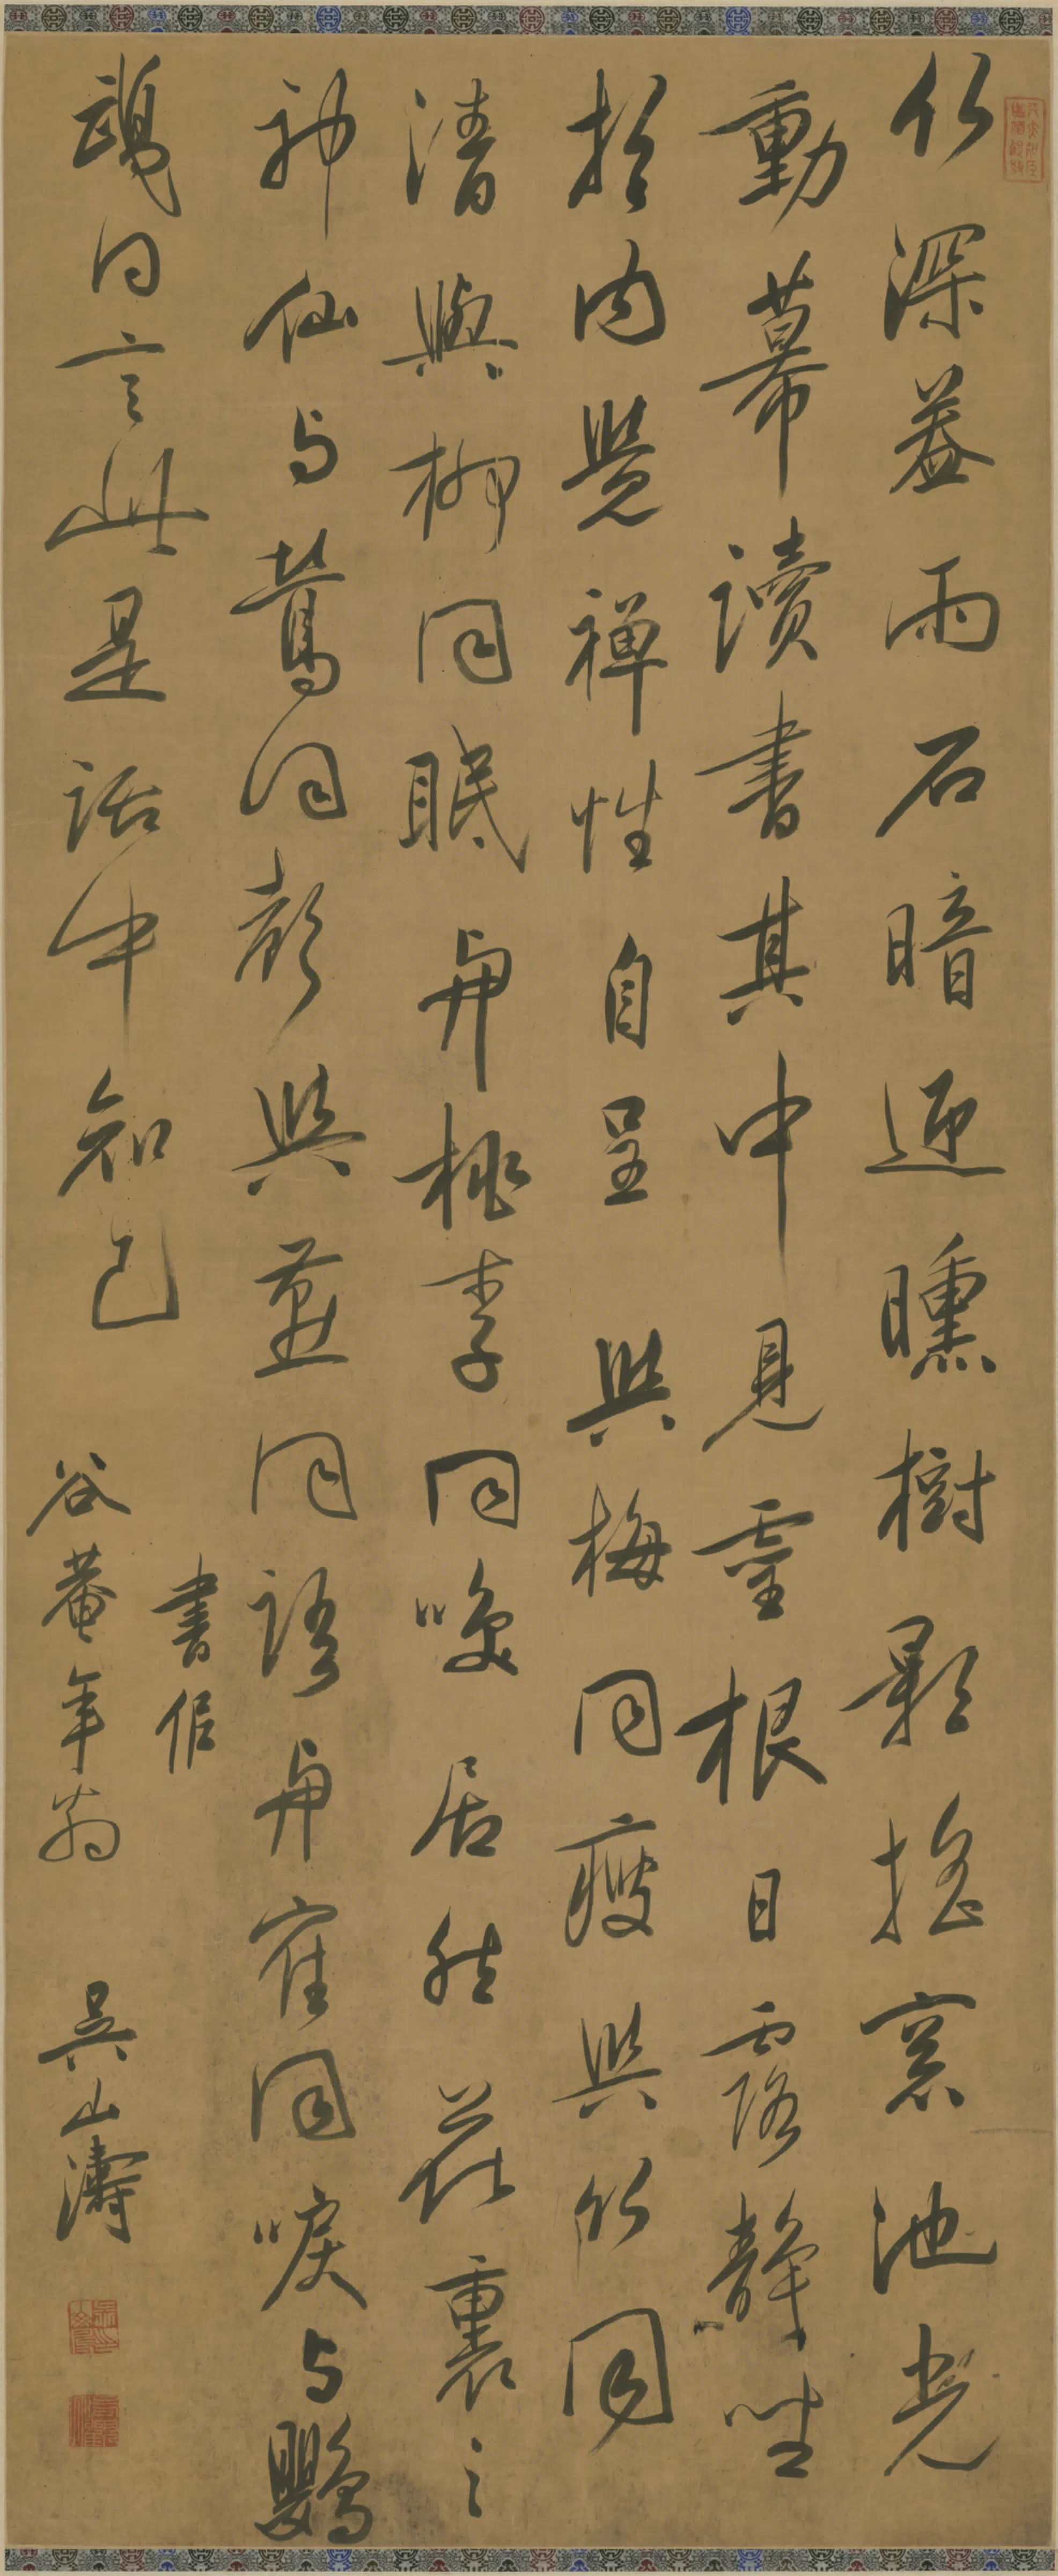 竹深蓋雨石暗迎曛樹影搖窓池光
動幕讀書其中見靈根日露靜坐
於內覺禪性自呈與梅同瘦與竹同
清與柳同眠與桃李同咲居然花裏之
神仙与鶯同與燕同語與隺同唳与鸚
鵡同言此是話中知己
書似
谷菴年翁 吳山濤